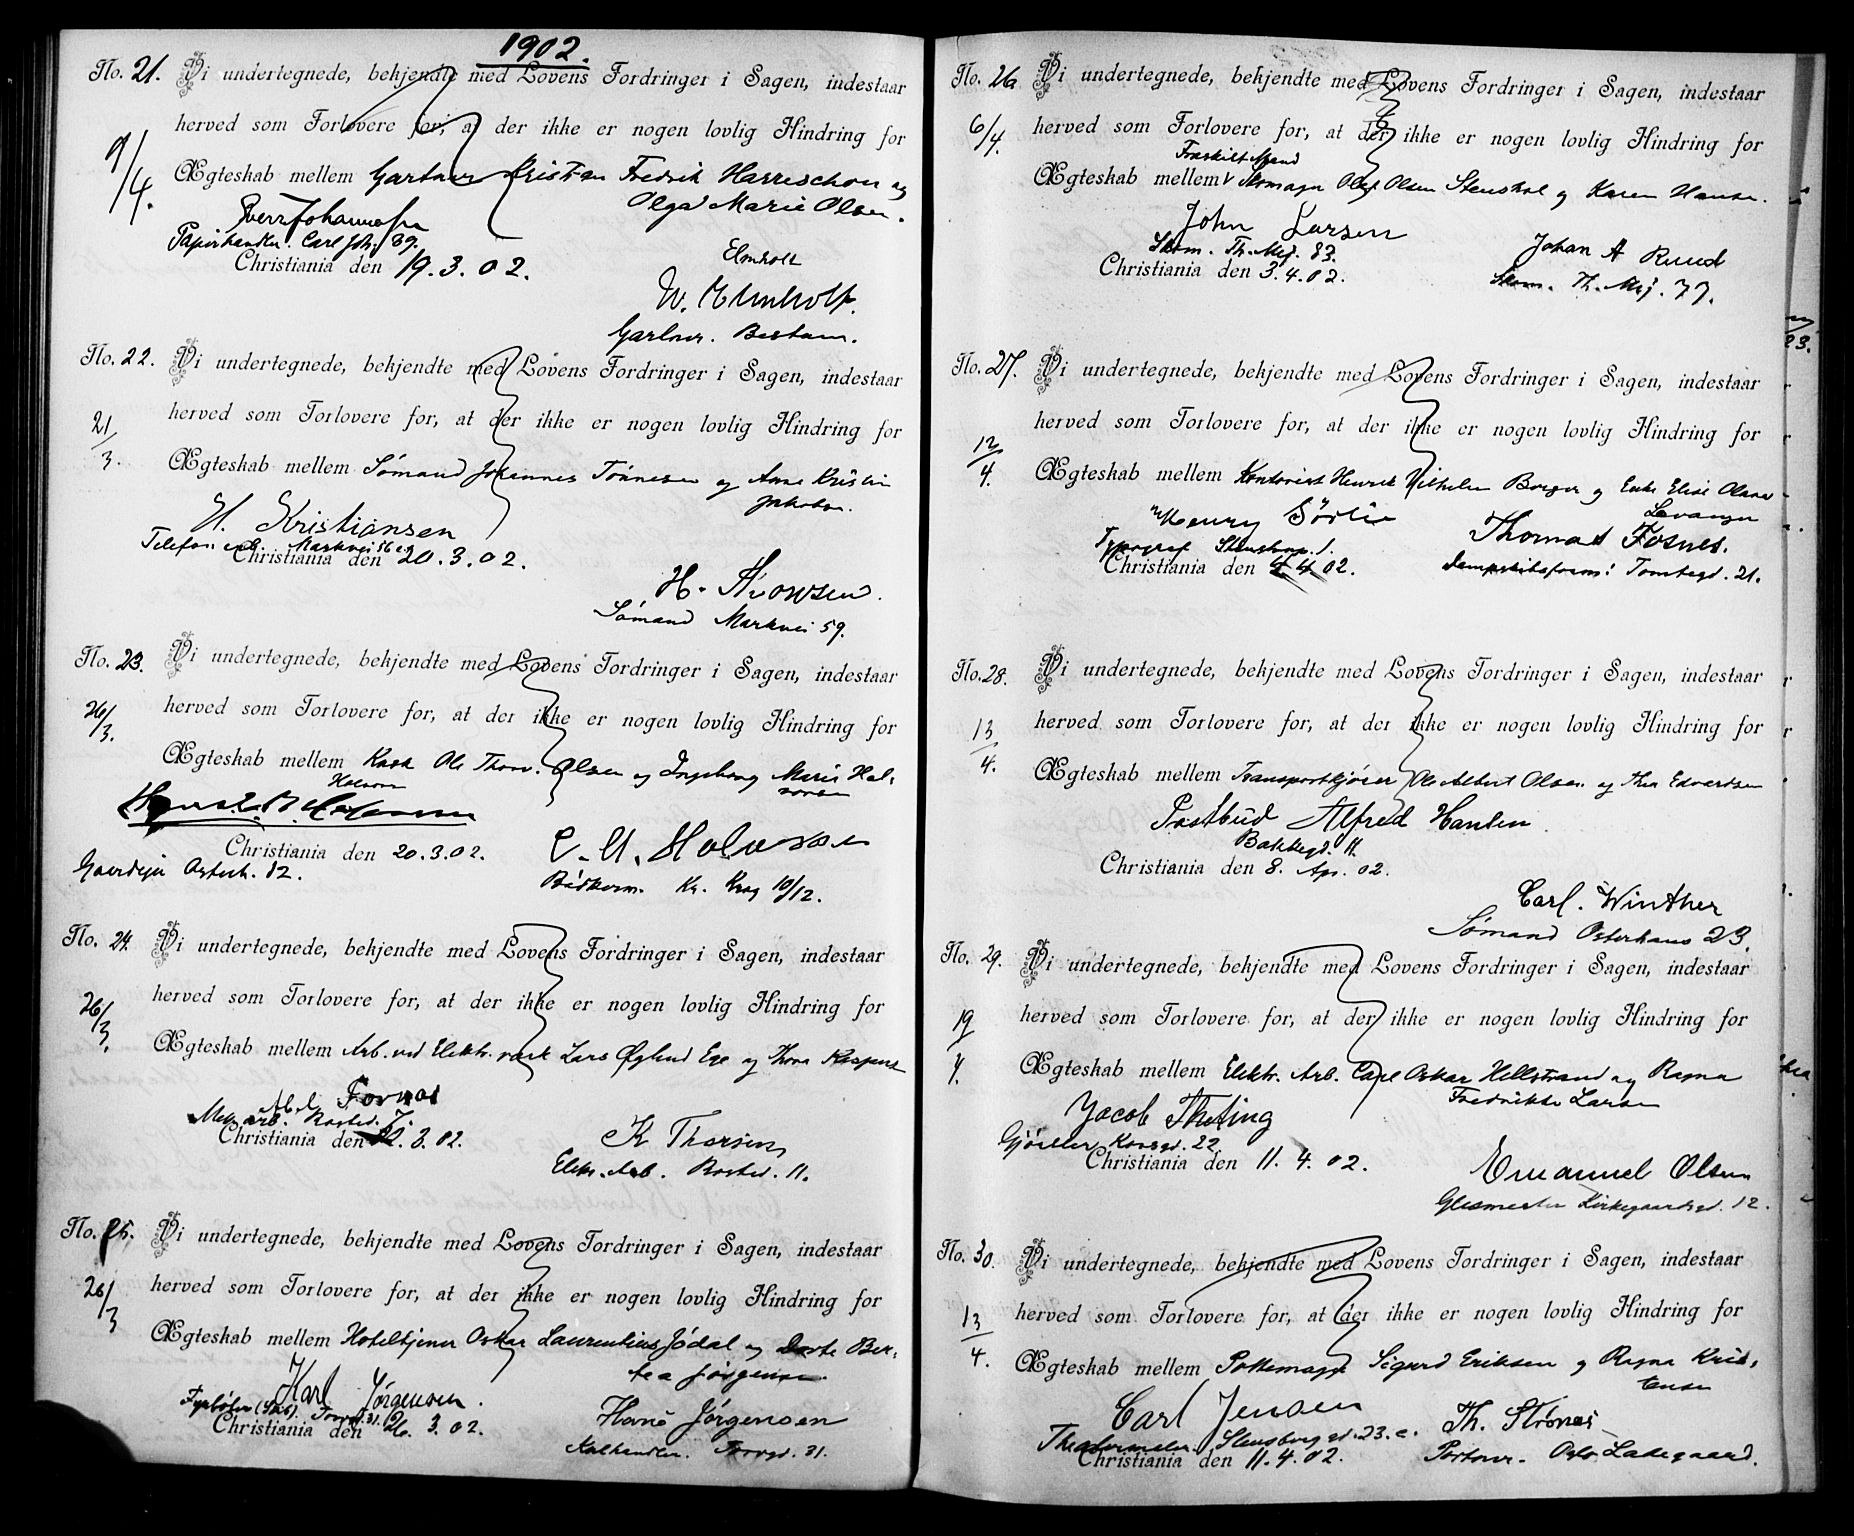 1902.
No. 21. Vi undertegnede, bekjendte med Lovens Fordringer i Sagen, indestaar
herved som Forlovere for, at der ikke er nogen lovlig Hindring for
9/4. Ægteskab mellem Gartner Kristian Fredrik Harrieschou og
Olga Marie Olsen.
Papirhandler. Carl Joh. 39.
Christiania den 19.3.02.
Elmholt
W. Elmholt.
Gartner. Bestum.
No. 22. Vi undertegnede, bekjendte med Lovens Fordringer i Sagen, indestaar
herved som Forlovere for, at der ikke er nogen lovlig Hindring for
21/3. Ægteskab mellem Sømand Johannes Tønnesen og Anne Kristin
Jakobsen.
H. Kristiansen
Markvei 56
Christiania den 20.3.02.
H.
Sømand Markvei 59.
No. 23. Vi undertegnede, bekjendte med Lovens Fordringer i Sagen, indestaar
herved som Forlovere for, at der ikke er nogen lovlig Hindring for
26/3. Ægteskab mellem Kusk Ole Thorv. Olsen og Ingeborg Marie Hal-
vorsen
Christiania den 20.3.02.
Gaardejer Osterh. 12.
Bødkerm. Kr. Krog 10/12.
No. 24. Vi undertegnede, bekjendte med Lovens Fordringer i Sagen, indestaar
herved som Forlovere for, at der ikke er nogen lovlig Hindring for
26/3. Ægteskab mellem Arb. ved Elektr. værk Lars Øglend Ege og Thora Kaspers
Mek. arb. Rosted. 7.
Christiania den 22.3.02.
K Thorsen
Elektr. Arb. Rosted. 11.
No. 25. Vi undertegnede, bekjendte med Lovens Fordringer i Sagen, indestaar
herved som Forlovere for, at der ikke er nogen lovlig Hindring for
26/3 Ægteskab mellem Hoteltjener Oskar Laurentius Jødal og Dorte Ber-
tea Jørgensen.
Karl Jørgensen.
Fyrbøter Torvgd. 31.
Christiania den 26.3.02.
Jørgensen
Kulhandler. Torvgd. 31.
No. 26 Vi undertegnede, bekjendte med Lovens Fordringer i Sagen, indestaar
herved som Forlovere for, at der ikke er nogen lovlig Hindring for
6/4. Fraskilt Mand
Ægteskab mellem Skomagr Olaf Olsen Stenskol og Karen Hansen.
John Larsen
Skom. Th. Mej. 83.
Christiania den 3.4.02.
Johan A Ruud
Skom. Th. Mej. 77.
No. 27. Vi undertegnede, bekjendte med Lovens Fordringer i Sagen, indestaar
herved som Forlovere for, at der ikke er nogen lovlig Hindring for
12/4. Ægteskab mellem Kontorist Henrik Vilhelm Borger og Enke Elise Olava
Levanger
Henry Sørlie
Typograf Stenstrup. 1.
Christiania den 4.02.
Thomas Fosnes.
Tomtegd. 21.
No. 28. Vi undertegnede, bekjendte med Lovens Fordringer i Sagen, indestaar
herved som Forlovere for, at der ikke er nogen lovlig Hindring for
13/4. Ægteskab mellem Transportkjører Ole Albert Olsen og Thea Edvardsen
Postbud Alfred Hansen
Bakkegd. 11.
Christiania den 8. Apr. 02.
Carl. Winther
Sømand Osterhaus 23.
No. 29. Vi undertegnede, bekjendte med Lovens Fordringer i Sagen, indestaar
herved som Forlovere for, at der ikke er nogen lovlig Hindring for
19/4. Ægteskab mellem Elektr. Arb. Carl Oskar Hellstrand og Ragna
Fredrikke Larsen
Jacob Theting
Gjørtler Korsgd. 22.
Christiania den 11.4.02.
Emanuel Olsen
Glasmester Kirkegaardsgd. 12.
No. 30. Vi undertegnede, bekjendte med Lovens Fordringer i Sagen, indestaar
herved som Forlovere for, at der ikke er nogen lovlig Hindring for
13/4. Ægteskab mellem Pottemagr Sigurd Eriksen og Ragna Krist-
ensen
Carl Jensen
Theatermaler. Stensberggd. 23. c.
Christiania den 11.4.02.
Th. Strønes
Portner. Oslo Ladegaard.